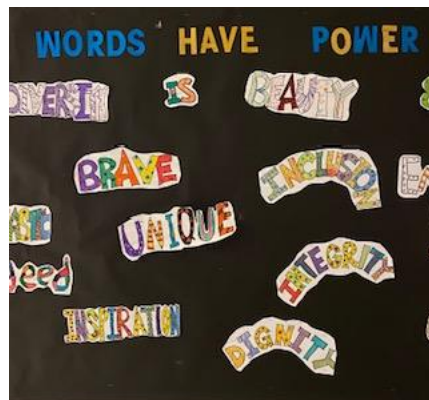 WORDS HAVE POWER
IS BEAUTY
BRAVE INCLUSION
UNIQUE
INTEGRITY
INSPIRATION
DIGNITY